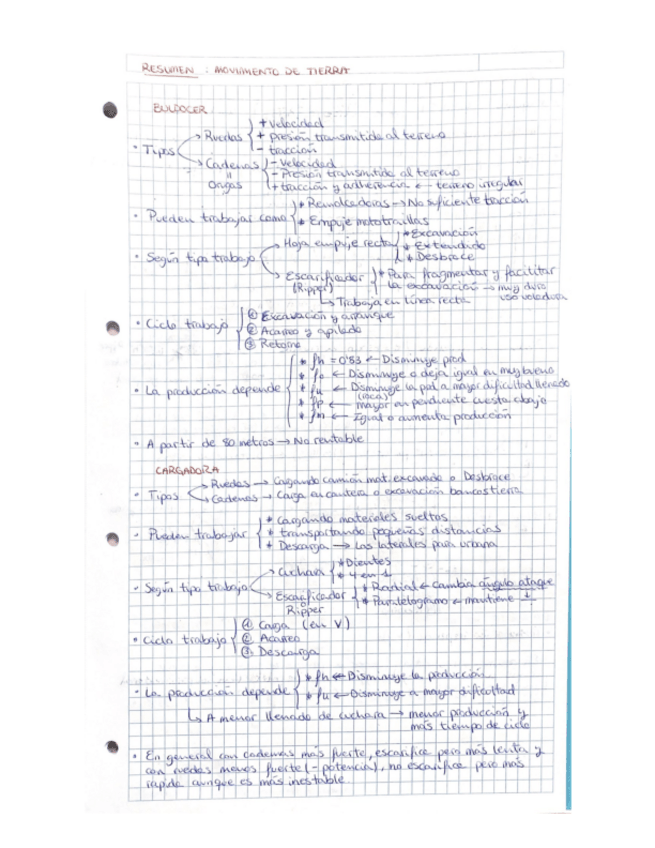 RESUMEN : MOVIMIENTO DE TIERRA
BULDOCER
• Tipos
→ Ruedas
+ velocidad
+ presión transmitida al terreno
- tracción
→ Cadenas
=
Orugas
- velocidad
- Presión transmitida al terreno
+ tracción y adherencia ← terreno irregular
• Pueden trabajar como
* Remolcadoras → No suficiente tracción
* Empuje mototraillas
• Según tipo trabajo
→ Hoja empuje recta
* Excavación
* Extendido
* Desbroce
→ Escarificador
(Ripper)
* Para fragmentar y facilitar
la excavación → muy duro
uso voladura
↳ Trabaja en línea recta
• Ciclo trabajo
① Excavación y arranque
② Acarreo y apilado
③ Retorno
• La producción depende
* fh = 0'83 ← Disminuye prod
* fo ← Disminuye o deja igual en muy bueno
* fu ← Disminuye la prod a mayor dificultad llenado
(roca)
* fp ← mayor en pendiente cuesta abajo
* fm ← Igual o aumenta producción
• A partir de 80 metros → No rentable
CARGADORA
• Tipos
→ Ruedas → Cargando camión mat. excavado o Desbroce
→ Cadenas → Carga en cantera o excavación bancos tierra
• Pueden trabajar
* Cargando materiales sueltos
* transportando pequeñas distancias
* Descarga → Las laterales para urbana
• Según tipo trabajo
→ Cuchara
* Dientes
* 4 en 1
→ Escarificador
o
Ripper
* Radial ← Cambia ángulo ataque
* Paralelogramo ← mantiene
• Ciclo trabajo
① Carga (en V)
② Acarreo
③ Descarga
• La producción depende
* fh ← Disminuye la producción
* fu ← Disminuye a mayor dificultad
↳ A menor llenado de cuchara → menor producción y
más tiempo de ciclo
• En general con cadenas más fuerte, escarifica pero más lenta y
con ruedas menos fuerte (- potencia), no escarifica pero más
rápida aunque es más inestable